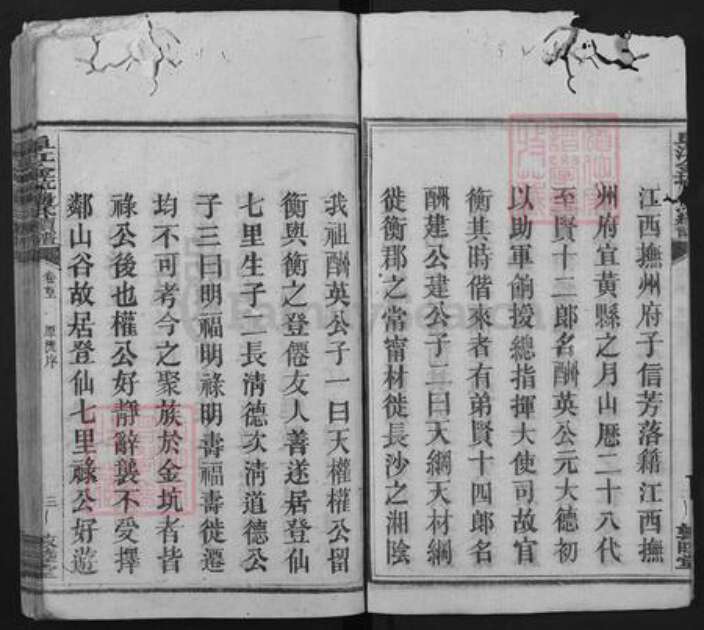 江西撫州府子信芳落籍江西撫
州府宜黃縣之月山歷二十八代
至賢十二郎名酬英公元大德初
以助軍餉援總指揮大使司故官
衡其時偕來者有弟賢十四郎名
酬建公建公子二曰天綱天材綱
徙衡郡之常甯材徙長沙之湘陰
我祖酬英公子一曰天權權公留
衡與衡之登僊友人善遂居登仙
七里生子二長淸德次淸道德公
子三曰明福明祿明壽福壽徙遷
均不可考今之聚族於金坑者皆
祿公後也權公好靜辭襲不受擇
鄰山谷故居登仙七里祿公好遊
卷首 原興序
三